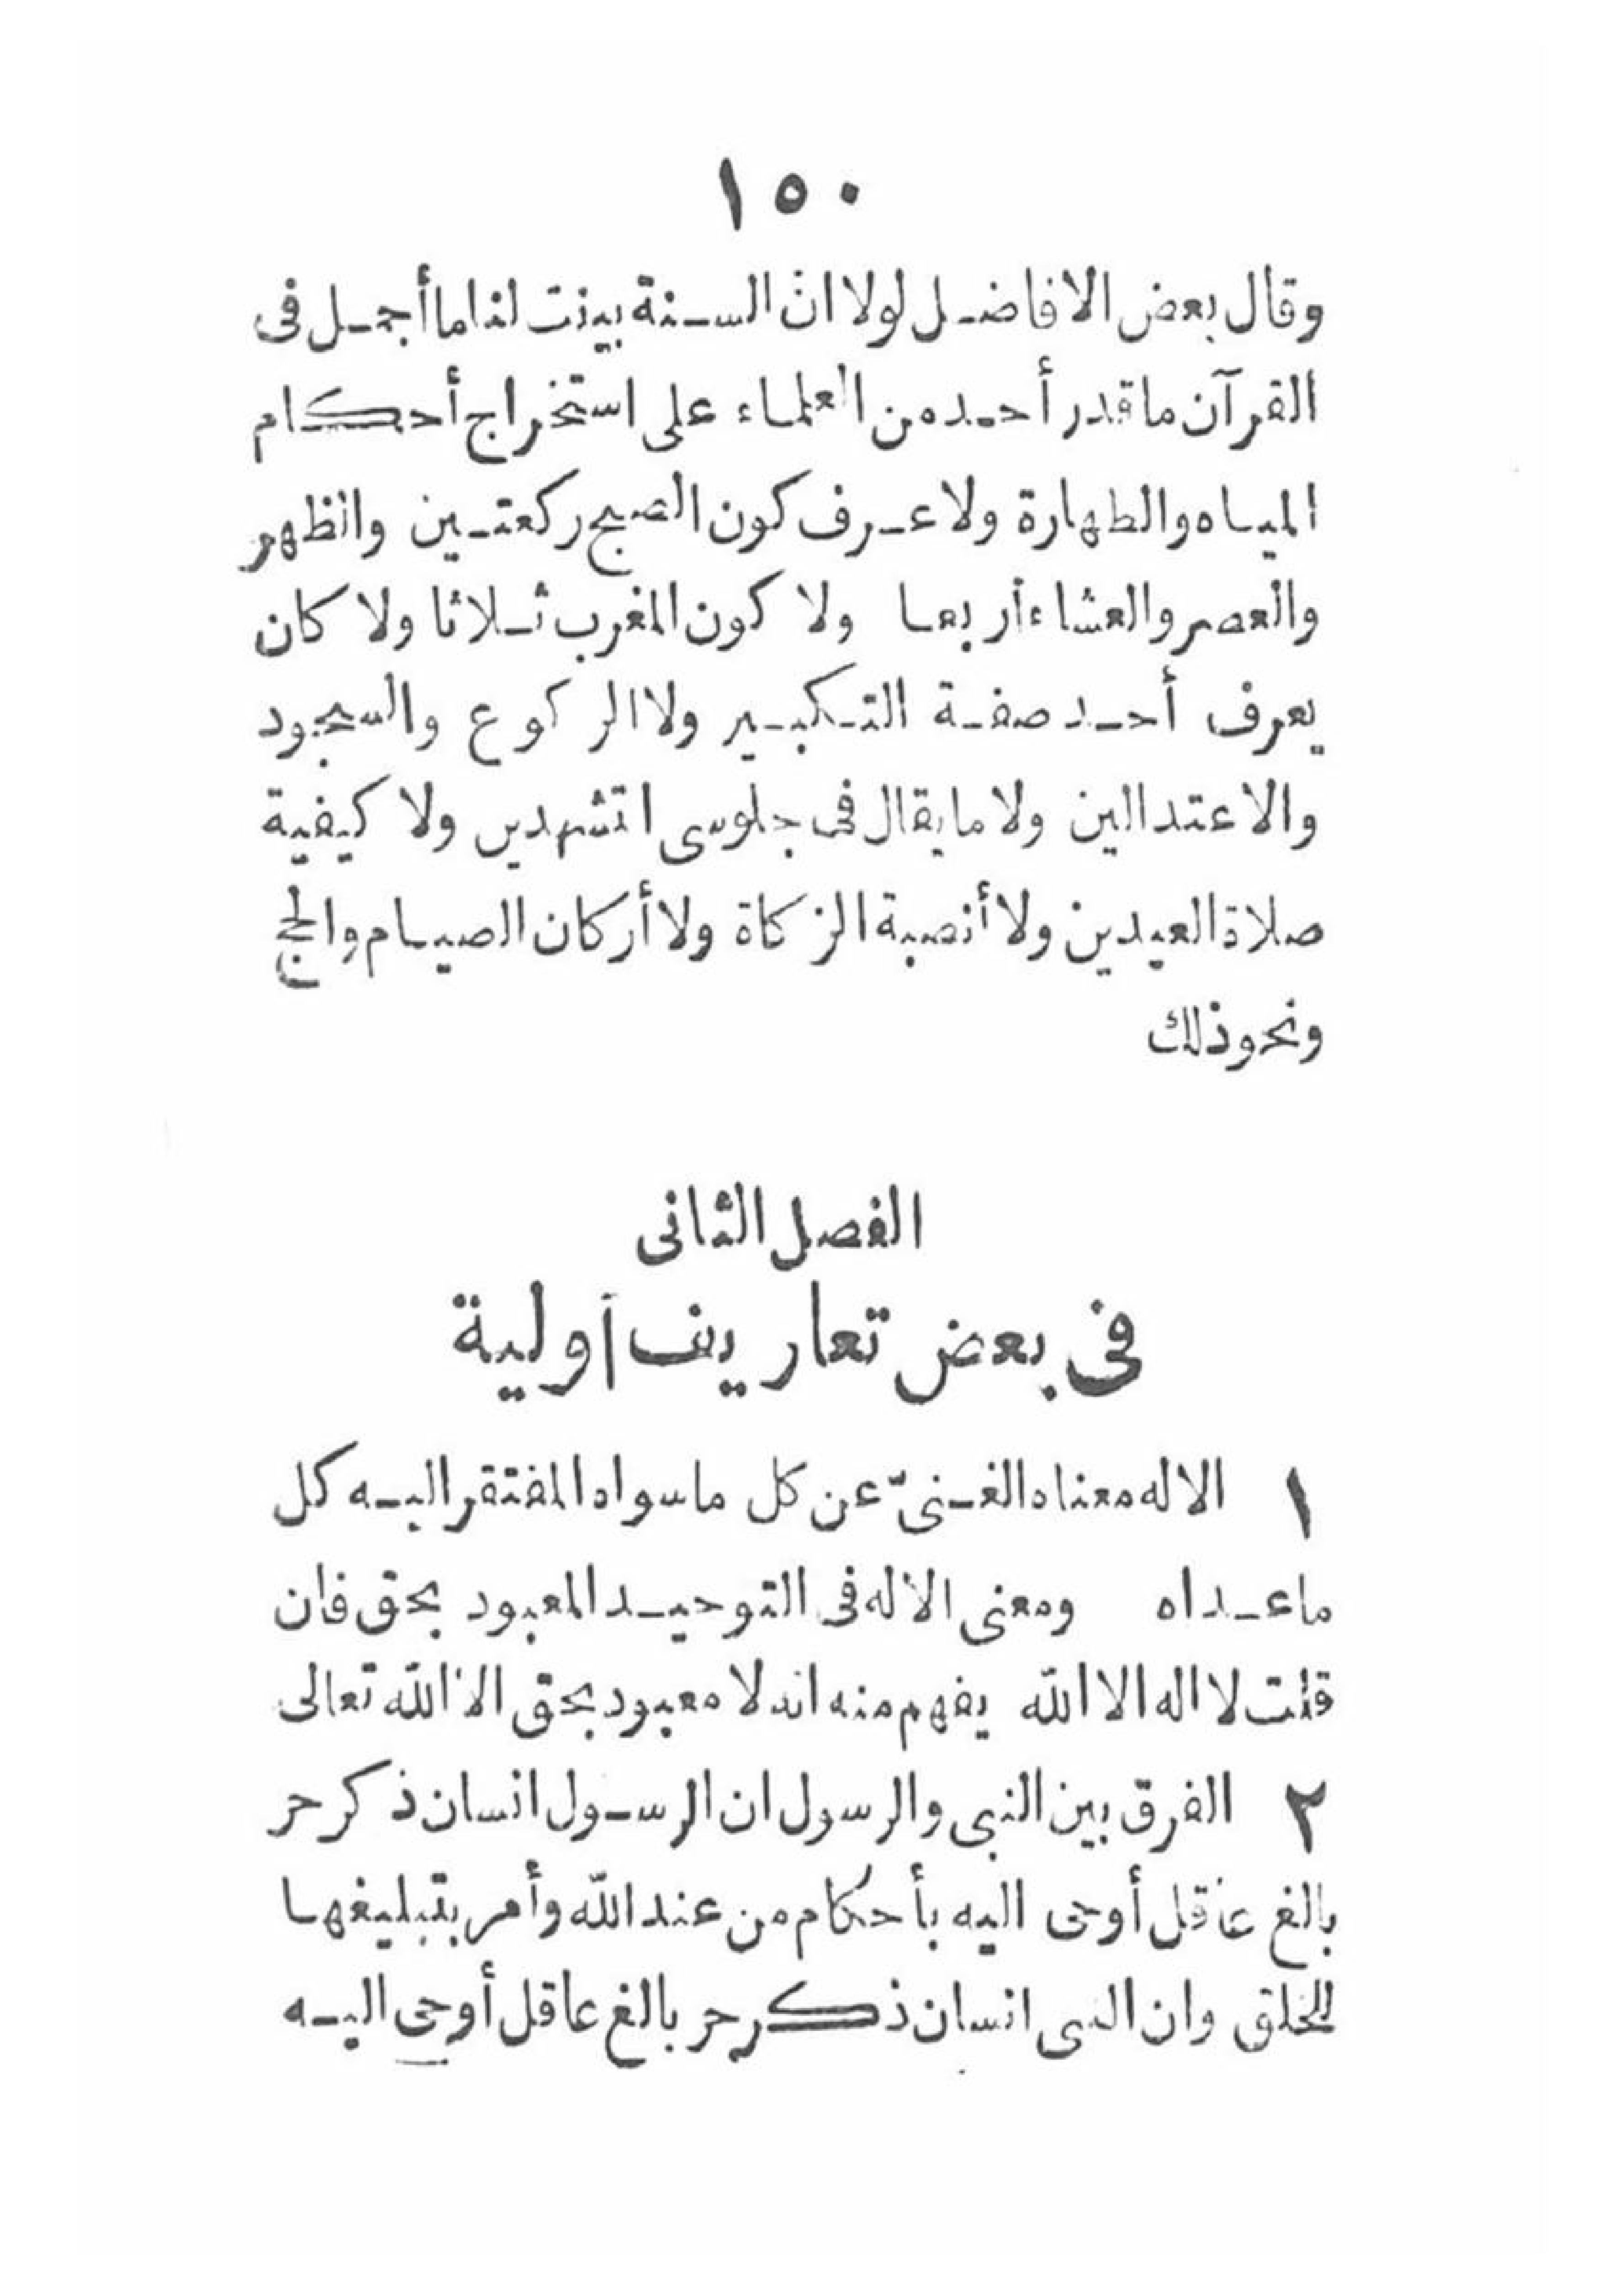 ١٥٠
وقال بعض الافاضل لولا انّ السنة بينت لنا ما أجمل فى
القرآن ما قدر أحد من العلماء على استخراج أحكام
المياه والطهارة ولا عرف كون الصبح ركعتين والظهر
والعصر والعشاء أربعا ولا كون المغرب ثلاثا ولا كان
يعرف أحد صفة التكبير ولا الركوع والسجود
والاعتدالين ولا ما يقال فى جلوسى التشهدين ولا كيفية
صلاة العيدين ولا أنصبة الزكاة ولا أركان الصيام والحج
ونحو ذلك
الفصل الثانى
فى بعض تعاريف أولية
١ الاله معناه الغنىّ عن كل ما سواه المفتقر اليه كل
ما عداه ومعنى الاله فى التوحيد المعبود بحق فان
قلت لا اله الا الله يفهم منه انه لا معبود بحق الا الله تعالى
٢ الفرق بين النبى والرسول ان الرسول انسان ذكر حر
بالغ عاقل أوحى اليه بأحكام من عند الله وأمر بتبليغها
للخلق وان النبى انسان ذكر حر بالغ عاقل أوحى اليه